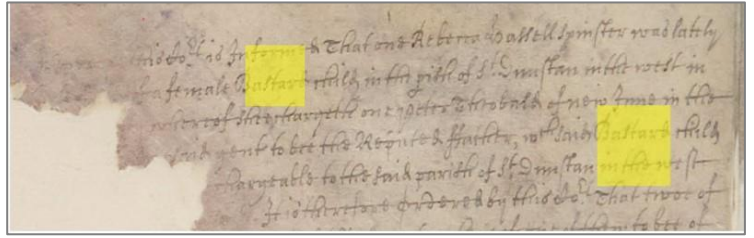 this Co.rt is Informed That one Rebecca Hassell Spinster was lately
a female Bastard child in the p'ish of St. Dunstan in the west in
whereof she chargeth one Peter Theobald of new Inne in the
to bee the Reputed ffather, wch said Bastard child
chargeable to the said parish of St. Dunstan in the west
It is therefore Ordered by this Co.rt That twoe of
of them to bee of